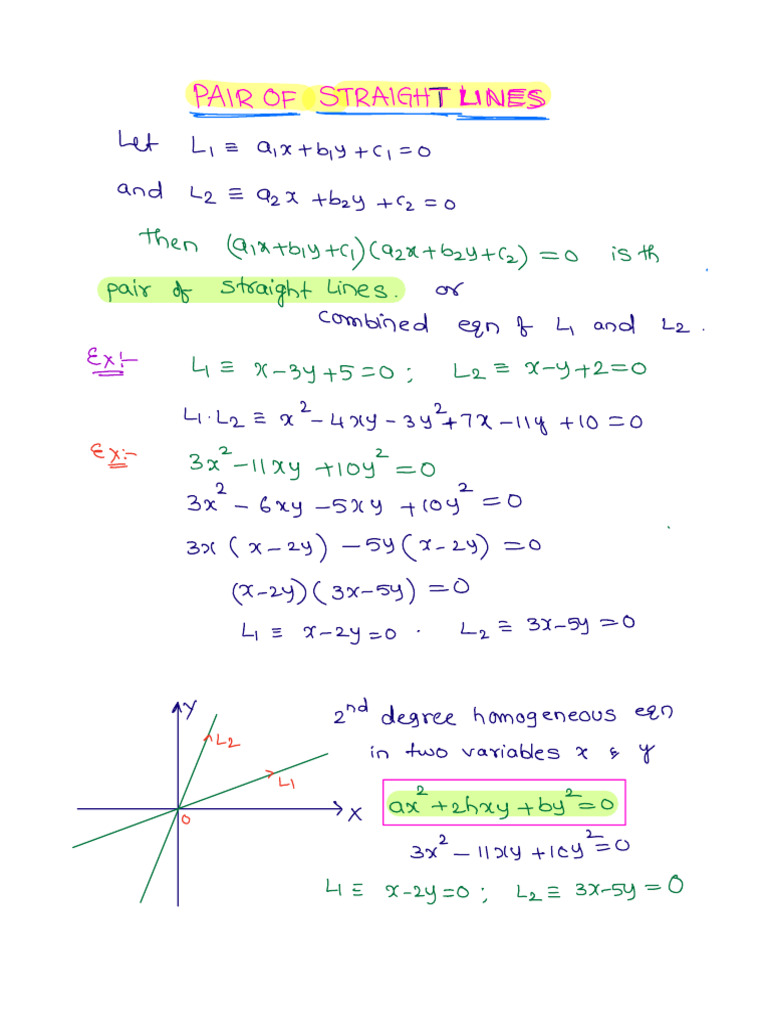 PAIR OF STRAIGHT LINES
Let L₁ ≡ a₁x+b₁y+c₁=0
and L₂ ≡ a₂x+b₂y+c₂=0
Then (a₁x+b₁y+c₁)(a₂x+b₂y+c₂)=0 is th
pair of straight Lines. or
combined eqn of L₁ and L₂.
Ex:- L₁ ≡ x-3y+5=0; L₂ ≡ x-y+2=0
L₁·L₂ ≡ x²-4xy-3y²+7x-11y+10=0
Ex:- 3x²-11xy+10y²=0
3x²-6xy-5xy+10y²=0
3x(x-2y)-5y(x-2y)=0
(x-2y)(3x-5y)=0
L₁ ≡ x-2y=0. L₂ ≡ 3x-5y=0
Y
L₂
L₁
X
O
2nd degree homogeneous eqn
in two variables x & y
ax²+2hxy+by²=0
3x²-11xy+10y²=0
L₁ ≡ x-2y=0; L₂ ≡ 3x-5y=0